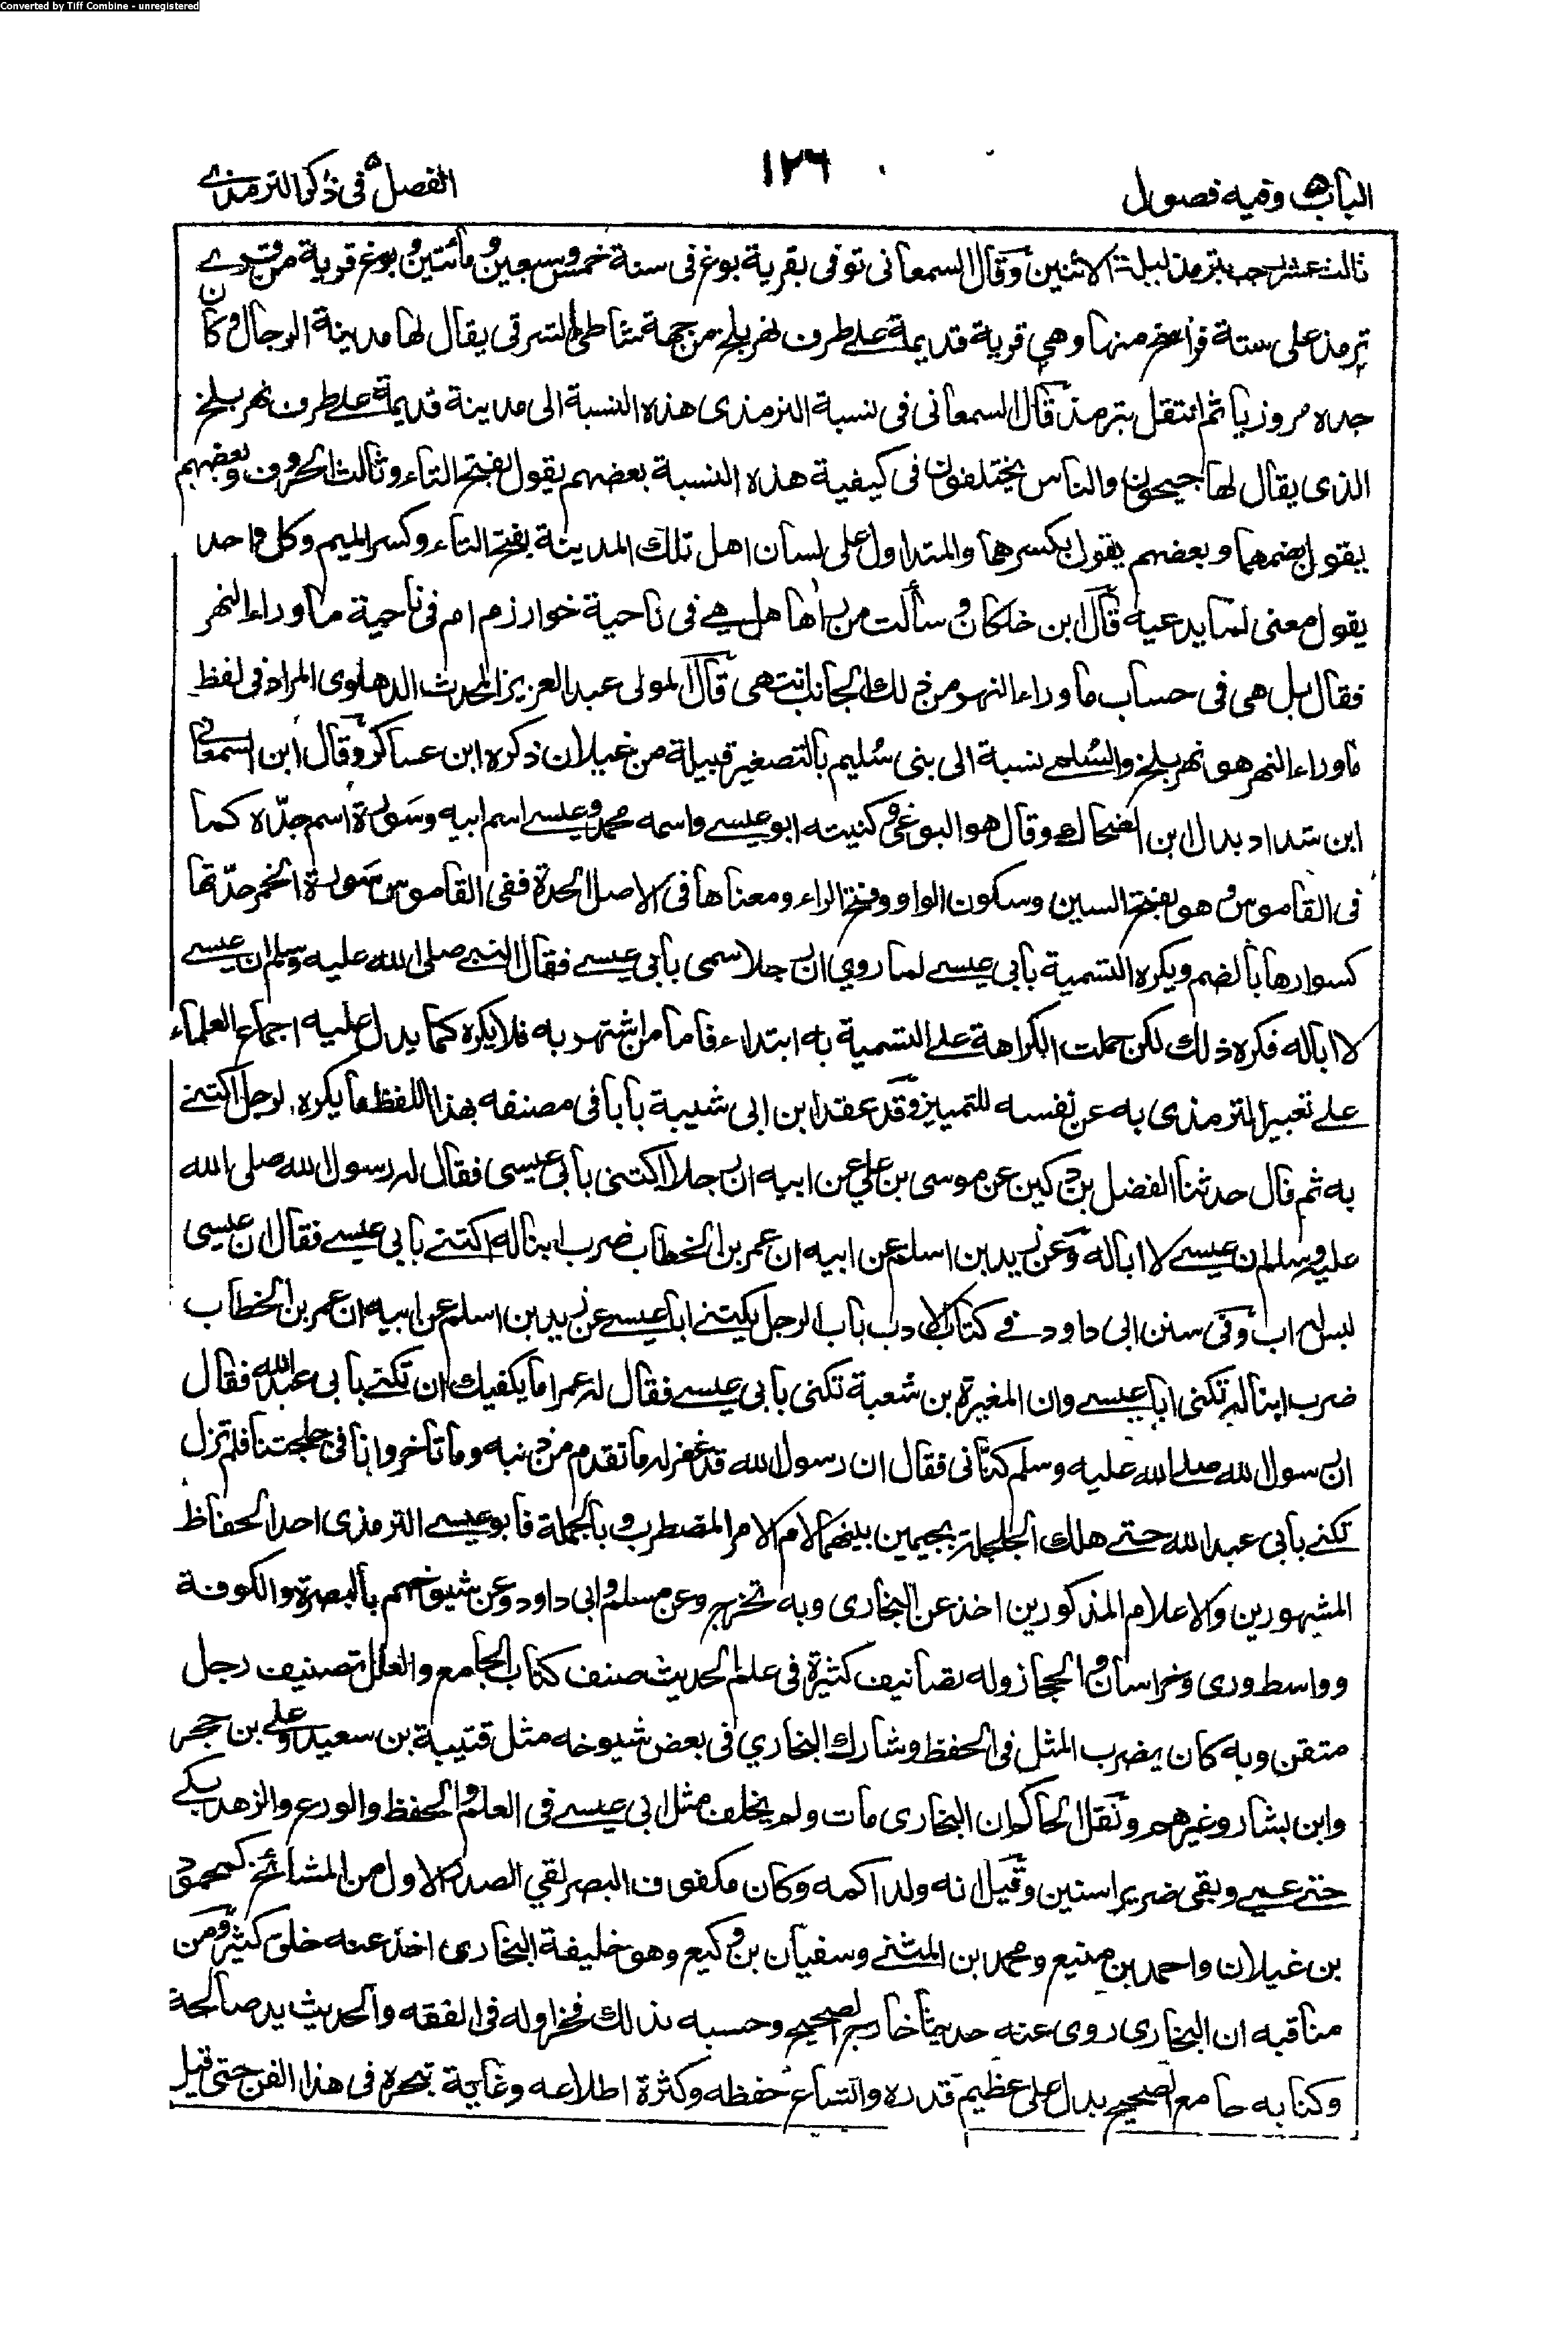 Converted by Tiff Combine - unregistered
الباب ۵ وفيه فصول
١٢٦
الفصل ۵ فى ذكر الترمذى
ثالث عشر رجب بترمذ ليلة الاثنين وقال السمعانى توفى بقرية بوغ فى سنة خمس وسبعين ومائتين وبوغ قرية من قرى
ترمذ على ستة فراسخ منها وهى قرية قديمة على طرف نهر بلخ من جهة شاطئ الشرقى يقال لها مدينة الرجال وكان
جده مروزيا ثم انتقل بترمذ قال السمعانى فى نسبة الترمذى هذه النسبة الى مدينة قديمة على طرف نهر بلخ
الذى يقال لها جيحون والناس يختلفون فى كيفية هذه النسبة بعضهم يقول بفتح التاء وثالث الحروف وبعضهم
يقول بضمهما وبعضهم يقول بكسرهما والمتداول على لسان اهل تلك المدينة بفتح التاء وكسر الميم وكل واحد
يقول معنى لما يدعيه قال ابن خلكان وسألت من رأها هل هى فى ناحية خوارزم ام فى ناحية ماوراء النهر
فقال بل هى فى حساب ما وراء النهر من ذلك الجانب انتهى قال المولى عبد العزيز المحدث الدهلوى المراد فى لفظ
ماوراء النهر هو نهر بلخ والسُلمى نسبة الى بنى سُليم بالتصغير قبيلة من غيلان ذكره ابن عساكر وقال ابن السمعانى
ابن شداد بدل ابن الضحاك وقال هو البوغى وكنيته ابو عيسى واسمه محمد وعيسى اسم ابيه وسَورة اسم جدّه كما
فى القاموس وهو بفتح السين وسكون الواو وفتح الراء ومعناها فى الاصل الحدة ففى القاموس سَورة الخمر حدّتها
كسوارها بالضم ويكره التسمية بابى عيسى لما روي ان رجلا سمى بابى عيسى فقال النبى صلى الله عليه وسلم ان عيسى
لا اباله فكره ذلك لكن حملت الكراهة على التسمية به ابتداء فاما من اشتهر به فلا يكره كما يدل عليه اجماع العلماء
على تعبير الترمذى به عن نفسه للتمييز وقد عقد ابن ابى شيبة بابا فى مصنفه بهذا اللفظ ما يكره لرجل اكتنى
به ثم قال حدثنا الفضل بن دكين عن موسى بن على عن ابيه ان رجلا اكتنى بابى عيسى فقال له رسول الله صلى الله
عليه وسلم ان عيسى لا اباله وعن زيد بن اسلم عن ابيه ان عمر بن الخطاب ضرب ابنا له اكتنى بابى عيسى فقال ان عيسى
ليس له اب وفى سنن ابى داود فى كتاب الادب باب الرجل يكتنى ابا عيسى عن زيد بن اسلم عن ابيه ان عمر بن الخطاب
ضرب ابنا له تكنى ابا عيسى وان المغيرة بن شعبة تكنى بابى عيسى فقال له عمر اما يكفيك ان تكنى بابى عبد الله فقال
ان رسول الله صلى الله عليه وسلم كنّانى فقال ان رسول الله قد غفر له ما تقدم من ذنبه وما تأخر وانا فى جلجتنا فلم تزل
تكنى بابى عبد الله حتى هلك الجلجلة بجيمين بينهما لام الامر المضطرب وبالجملة فابو عيسى الترمذى احد الحفاظ
المشهورين والاعلام المذكورين اخذ عن البخارى وبه تخرج وعن مسلم وابى داود وعن شيوخهم بالبصرة والكوفة
وواسط ورى وخراسان والحجاز وله تصانيف كثيرة فى علم الحديث صنف كتاب الجامع والعلل تصنيف رجل
متقن وبه كان يضرب المثل فى الحفظ وشارك البخاري فى بعض شيوخه مثل قتيبة بن سعيد وعلى بن حجر
وابن بشار وغيرهم ونقل الحاكم ان البخارى مات ولم يخلف مثل ابى عيسى فى العلم والحفظ والورع والزهد بكى
حتى عمى وبقى ضريرا سنين وقيل انه ولد اكمه وكان مكفوف البصر لقي الصدر الاول من المشائخ كمحمود
بن غيلان واحمد بن منيع ومحمد ابن المثنى وسفيان بن وكيع وهو خليفة البخارى اخذ عنه خلق كثير ومن
مناقبه ان البخارى روى عنه حديثا خارج الصحيح وحسبه بذلك فخرا وله فى الفقه والحديث يد صالحة
وكتابه جامع الصحيح يدل على عظيم قدره واتساع حفظه وكثرة اطلاعه وغاية تبحره فى هذا الفن حتى قيل